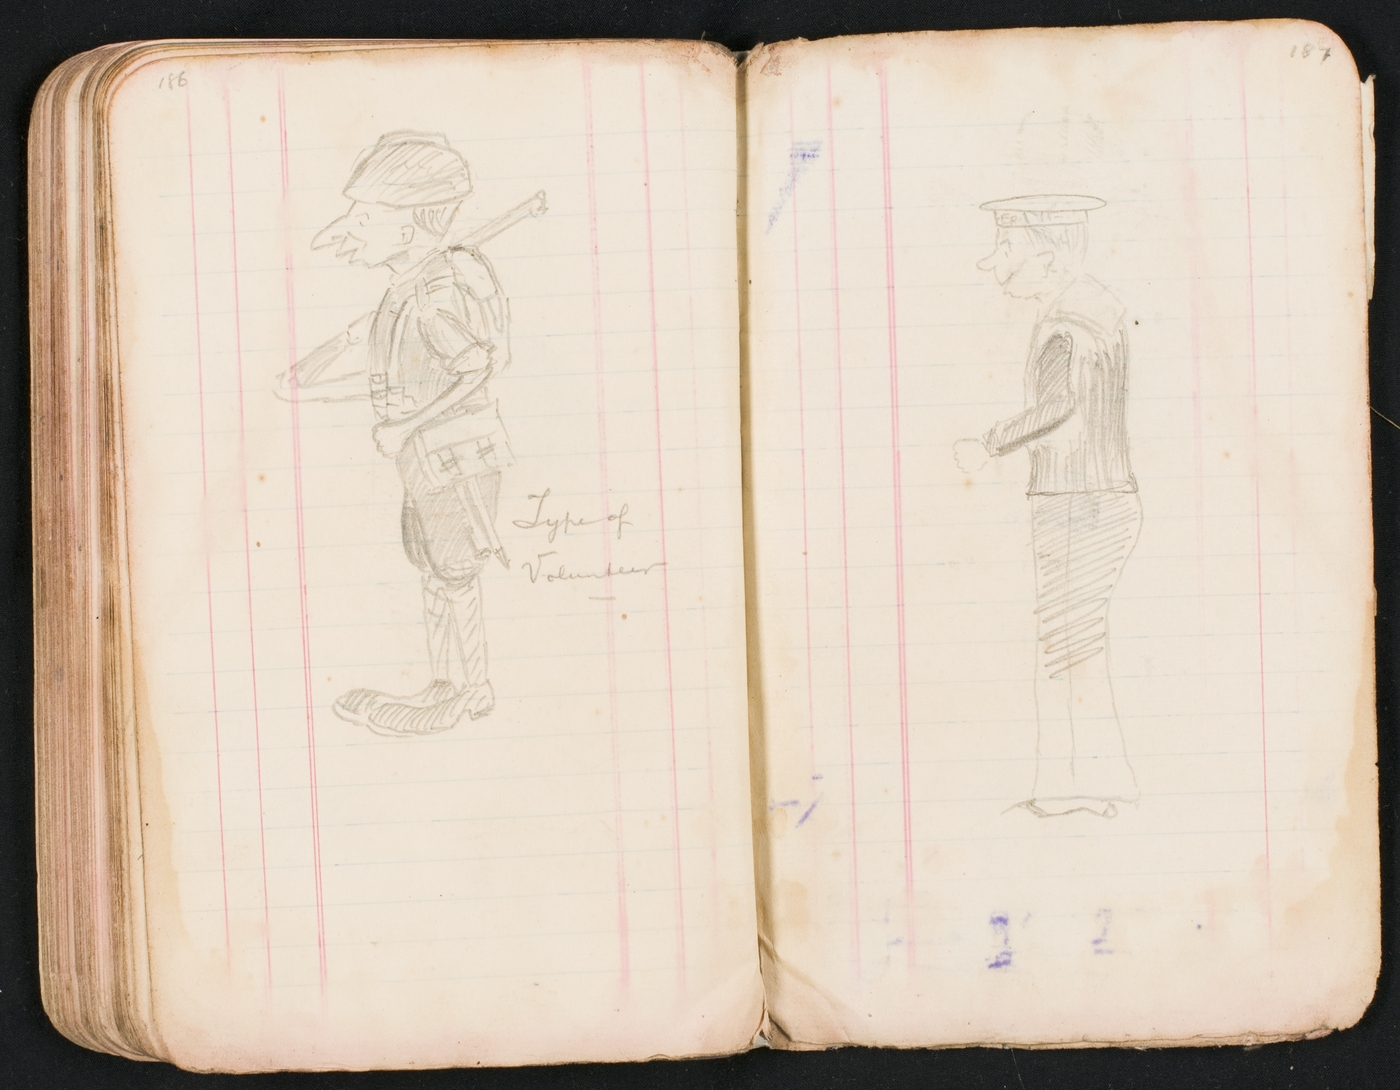 186
Type of
Volunteer
187